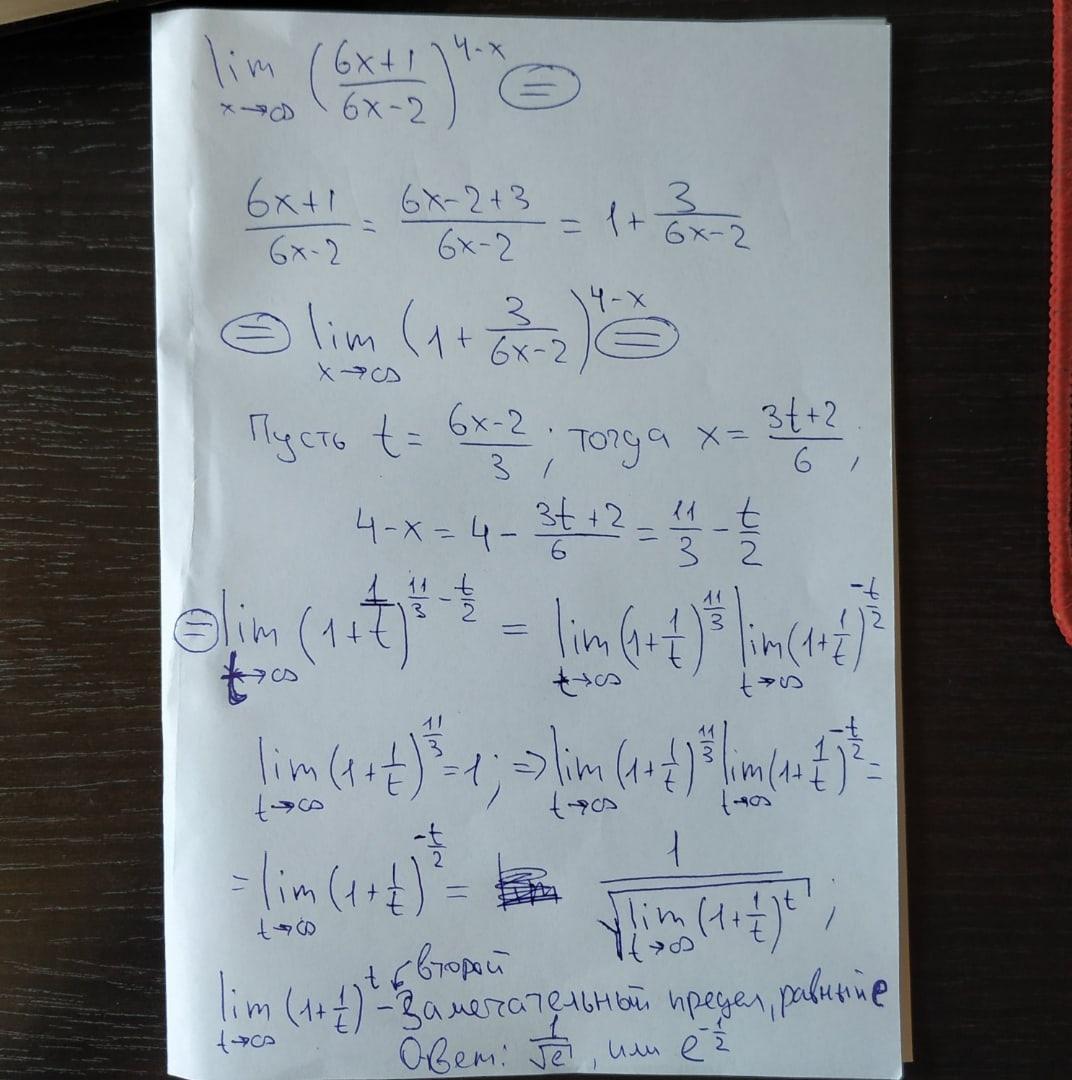 lim x→∞ ((6x+1)/(6x-2))^(4-x) =
(6x+1)/(6x-2) = (6x-2+3)/(6x-2) = 1 + 3/(6x-2)
= lim x→∞ (1 + 3/(6x-2))^(4-x) =
Пусть t = (6x-2)/3; тогда x = (3t+2)/6;
4-x = 4 - (3t+2)/6 = 11/3 - t/2
= lim t→∞ (1 + 1/t)^(11/3 - t/2) = lim t→∞ (1 + 1/t)^(11/3) lim t→∞ (1 + 1/t)^(-t/2)
lim t→∞ (1 + 1/t)^(11/3) = 1; ⇒ lim t→∞ (1 + 1/t)^(11/3) lim t→∞ (1 + 1/t)^(-t/2) =
= lim t→∞ (1 + 1/t)^(-t/2) = 1/√(lim t→∞ (1 + 1/t)^t);
lim t→∞ (1 + 1/t)^t - второй Замечательный предел, равный e
Ответ: 1/√e, или e^(-1/2)